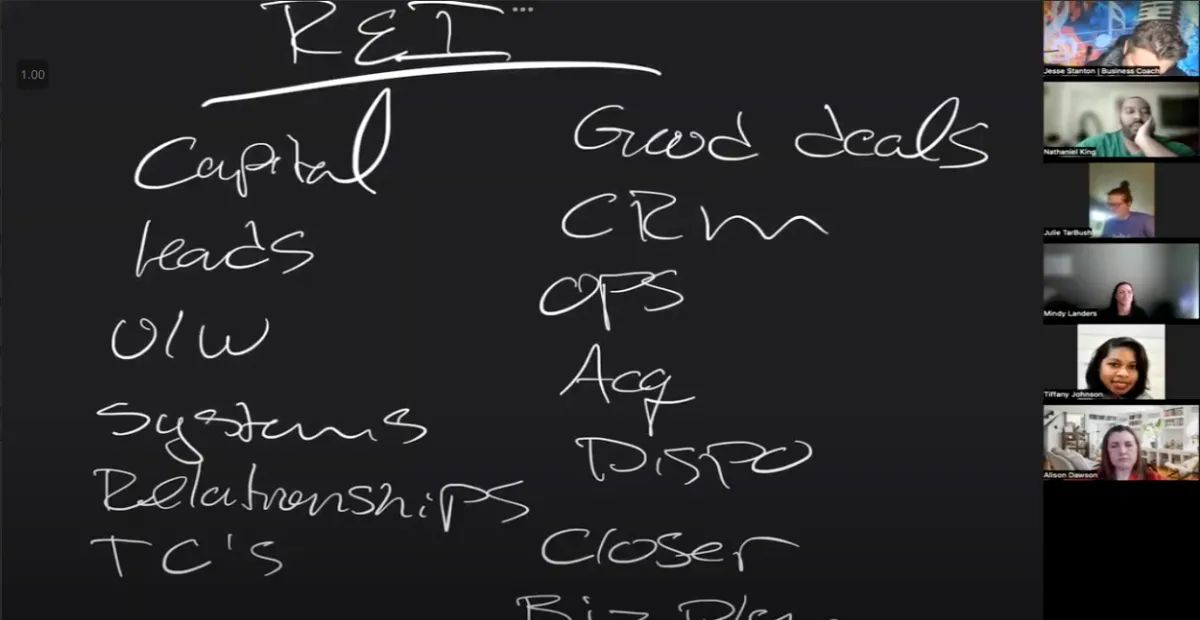 REI
1.00
Capital
Leads
O/W
Systems
Relationships
TC's
Good deals
CRM
OPS
Acq
Dispo
Closer
Biz Plan
Jesse Stanton | Business Coach
Nathaniel King
Julie TarBush
Mindy Landers
Tiffany Johnson
Alison Dawson